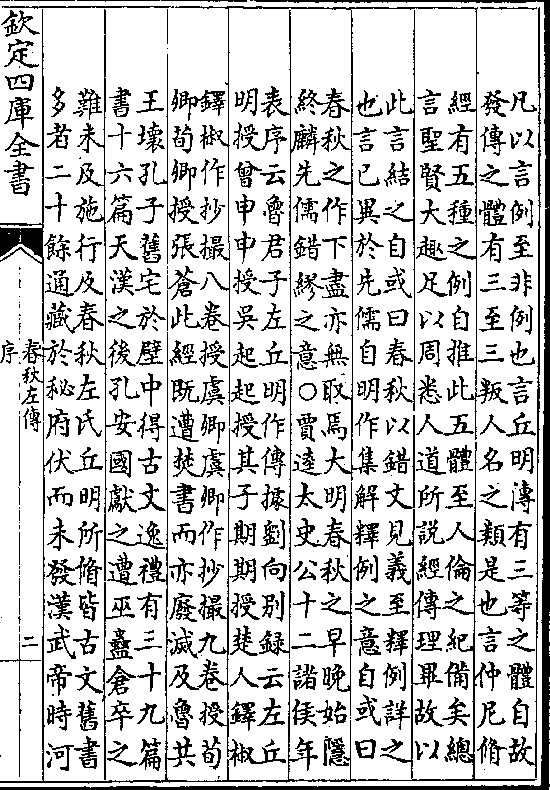 凡以言例至非例也言丘明傳有三等之體自故
發傳之體有三至三叛人名之類是也言仲尼脩
經有五種之例自推此五體至人倫之紀備矣總
言聖賢大趣足以周悉人道所説經傳理畢故以
此言結之自或曰春秋以錯文見義至釋例詳之
也言已異於先儒自明作集解釋例之意自或曰
春秋之作下盡亦無取焉大明春秋之早晚始隠
終麟先儒錯繆之意○賈逵太史公十二諸侯年
表序云魯君子左丘明作傳據劉向别録云左丘
明授曾申申授吴起起授其子期期授楚人鐸椒
鐸椒作抄撮八卷授虞卿虞卿作抄撮九卷授荀
卿荀卿授張蒼此經既遭焚書而亦廢滅及魯共
王壞孔子舊宅於壁中得古文逸禮有三十九篇
書十六篇天漢之後孔安國獻之遭巫蠱倉卒之
難未及施行及春秋左氏丘明所脩皆古文舊書
多者二十餘通藏於秘府伏而未發漢武帝時河
欽定四庫全書
春秋左傳
序
二